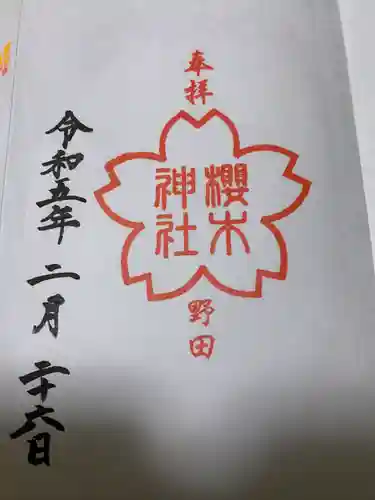 奉拝
櫻木
神社
野田
令和五年二月二十六日